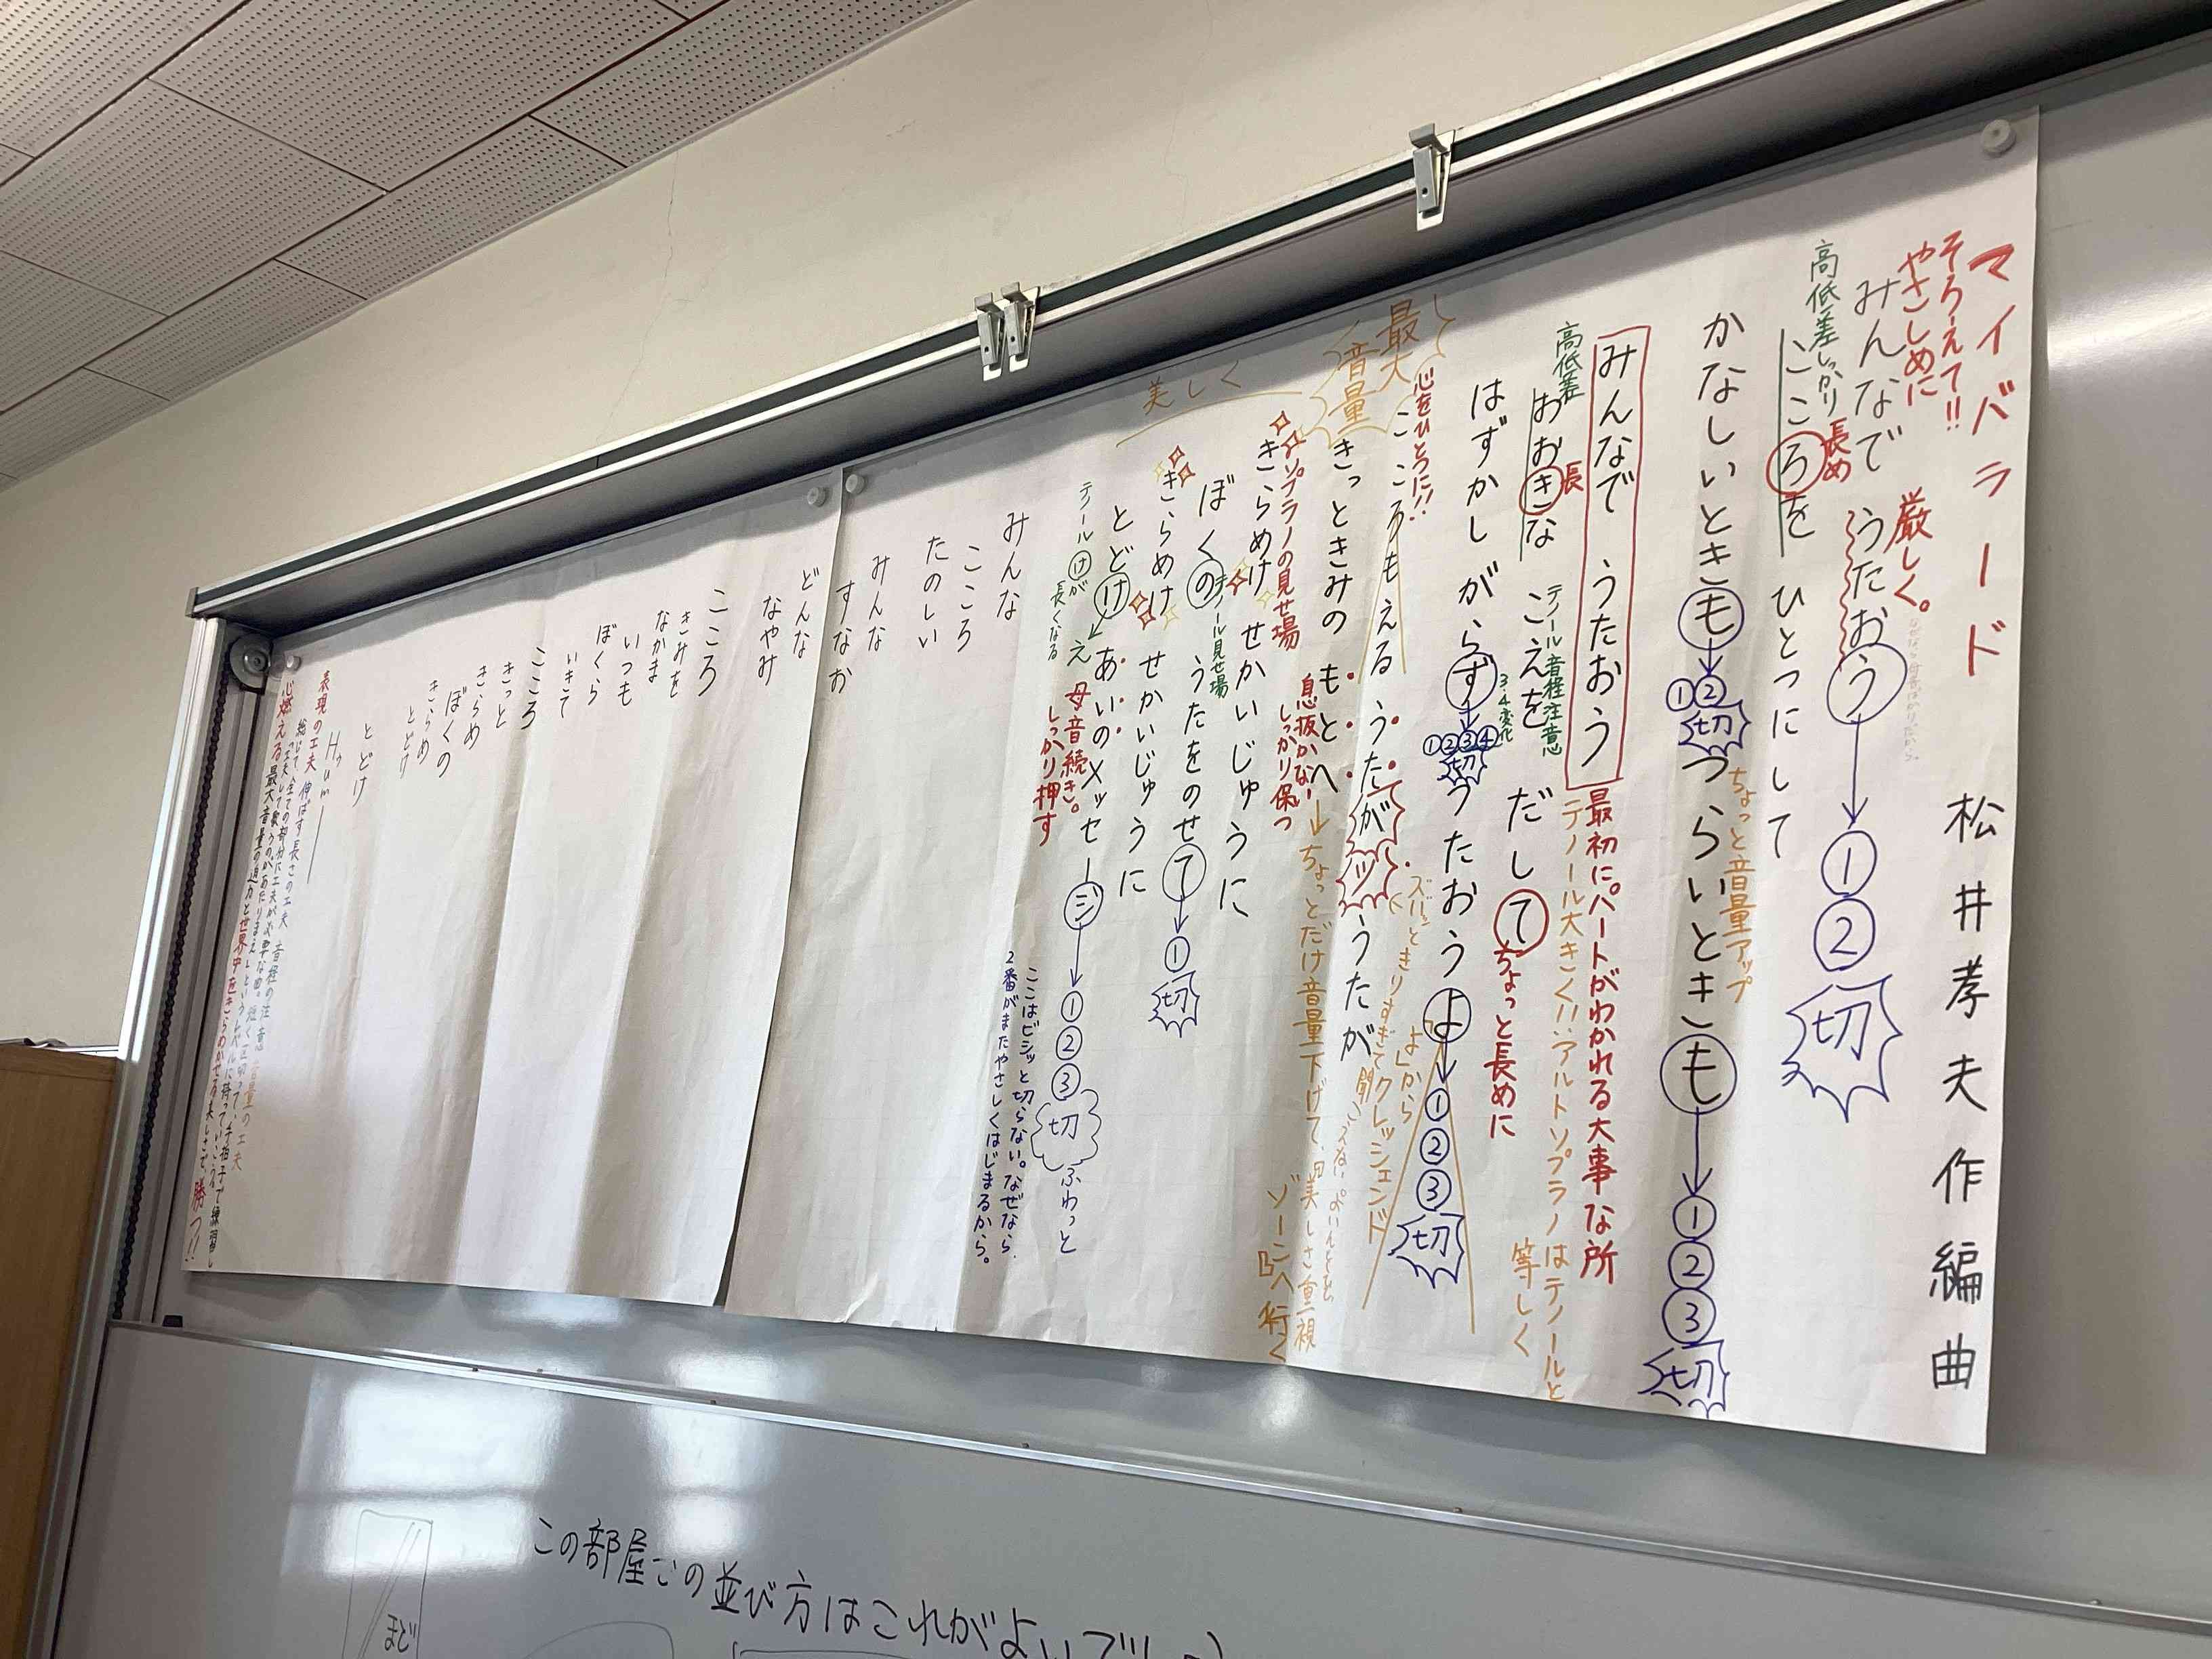 マイバラード 松井孝夫 作編曲
そろえて!!
やさしめに
厳しく。
みんなで うたおう→①②切
高低差しっかり
長め
こころを ひとつにして
ちょっと音量アップ
かなしいときも→①②切 つらいときも→①②③切
みんなで うたおう
最初にパートがわかれる大事な所
テノール大きく!!アルトソプラノはテノールと
等しく
高低差
長
テノール音程注意
3.4変化
おおきな こえを だして
ちょっと長めに
はずかしがらず→①②③④切 うたおうよ→①②③切
心をひとつに!!
こころもえる うたがッ うたが
最大
音量
ズバッときりすぎてクレッシェンド
よ」から
きっときみの もとへ
→ちょっとだけ音量下げて、美しさ重視
ゾーンBへ行く
美しく
息抜かない
しっかり保つ
ソプラノの見せ場
きらめけ せかいじゅうに
テノール見せ場
ぼくの うたをのせて→①切
きらめけ せかいじゅうに
とどけ→え あいのメッセージ→①②③切 ふわっと
テノールけが
長くなる
母音続き。
しっかり押す
ここはビシッと切らない。なぜなら
2番がまたやさしくはじまるから。
みんな
こころ
たのしい
みんな
すなお
どんな
なやみ
こころ
きみを
なかま
いつも
ぼくら
いきて
こころ
きっと
きらめ
ぼくの
きらめ
とどけ
とどけ
Hum
表現の工夫 伸ばす長さの工夫 音程の注意 音量の工夫
総じて、全ての部分に工夫が必要な曲。短く区切って、手拍子で練習し
「工夫して歌うのがあたりまえ」というレベルに持っていこう。
心燃える最大音量の迫力と世界中をきらめかせる美しさで、勝つ!!
この部屋での並び方はこれがよいでしょう
まど